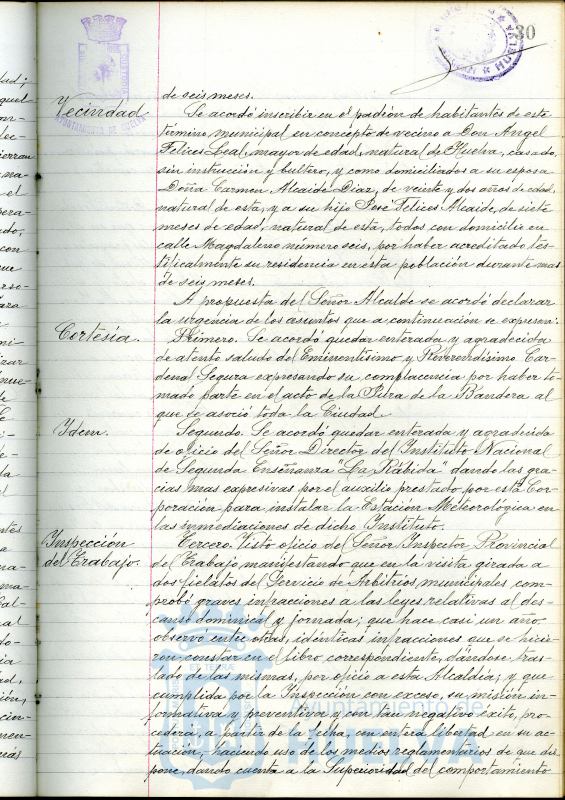 30
de seis meses.
Vecindad. Se acordó inscribir en el padrón de habitantes de este
término municipal en concepto de vecino a Don Angel
Felices Leal, mayor de edad, natural de Huelva, casado,
sin instrucción y bultero, y como domiciliados a su esposa
Doña Carmen Alcaide Díaz, de veinte y dos años de edad,
natural de esta, y a su hijo José Felices Alcaide, de siete
meses de edad, natural de esta, todos con domicilio en
calle Magdalena número seis, por haber acreditado tes-
tificalmente su residencia en esta población durante mas
de seis meses.
A propuesta del Señor Alcalde se acordó declarar
la urgencia de los asuntos que a continuación se expresan:
Cortesía. Primero. Se acordó quedar enterada y agradecida
de atento saludo del Eminentísimo y Reverendísimo Car-
denal Segura expresando su complacencia por haber to-
mado parte en el acto de la Jura de la Bandera al
que se asoció toda la Ciudad.
Idem. Segundo. Se acordó quedar enterada y agradecida
de oficio del Señor Director del Instituto Nacional
de Segunda Enseñanza "La Rábida" dando las gra-
cias mas expresivas por el auxilio prestado por esta Cor-
poración para instalar la Estación Meteorológica en
las inmediaciones de dicho Instituto.
Inspección Tercero. Visto oficio del Señor Inspector Provincial
del Trabajo. de Trabajo manifestando que en la visita girada a
dos fielatos del Servicio de Arbitrios municipales com-
probó graves infracciones a las leyes relativas al des-
canso dominical y jornada; que hace casi un año
observó entre otras, idénticas infracciones que se hicie-
ron constar en el libro correspondiente, dándose tras-
lado de las mismas, por oficio a esta Alcaldía; y que
cumplida por la Inspección con exceso, su misión in-
formativa y preventiva y con tan negativo éxito, pro-
cederá, a partir de la fecha, en entera libertad en su ac-
tuación, haciendo uso de los medios reglamentarios de que dis-
pone, dando cuenta a la Superioridad del comportamiento
Ayuntamiento de
HUELVA